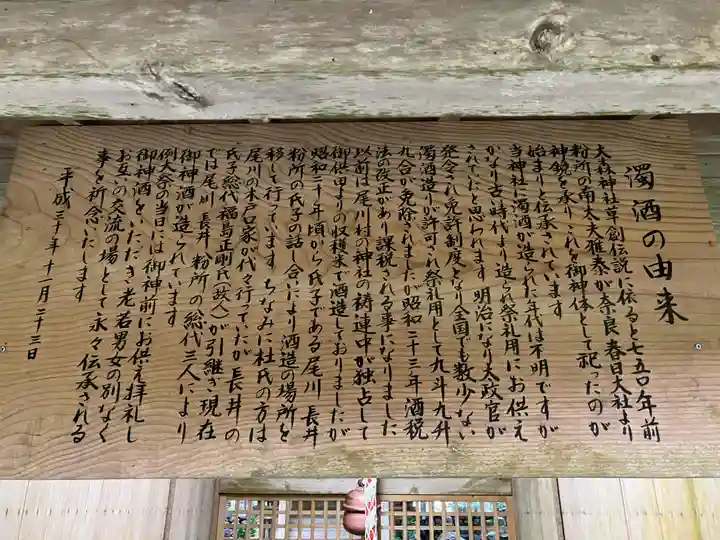 濁酒の由来
大森神社草創伝説に依ると七五〇年前
粉所の南太夫雅泰が奈良春日大社より
神鏡を承りこれを御神体として祀ったのが
始まりと伝承されています
当神社に濁酒が造られた年代は不明ですが
かなり古い時代より造られ祭礼用にお供え
されていたと思われます 明治になり太政官が
発令され免許制度となり全国でも数少ない
濁酒造りが許可され祭礼用として九斗九升
九合が免除されましたが昭和二十三年 酒税
法の改正があり課税される事になりました
以前は尾川村の神社の祷連中が独占して
御供田よりの収穫米で酒造しておりましたが
昭和三十年頃から氏子である尾川 長井
粉所の氏子の話し合いにより酒造の場所を
移して行っています ちなみに杜氏の方は
尾川の木石家が代々行っていたが長井の
氏子総代福島正剛氏(故人)が引継ぎ現在
では尾川 長井 粉所の総代三人により
御神酒が造られています
例大祭の当日には御神前にお供え拝礼し
御神酒をいただき老若男女の別なく
お互いの交流の場として永々伝承される
事を祈念いたします
平成三十年十一月二十三日